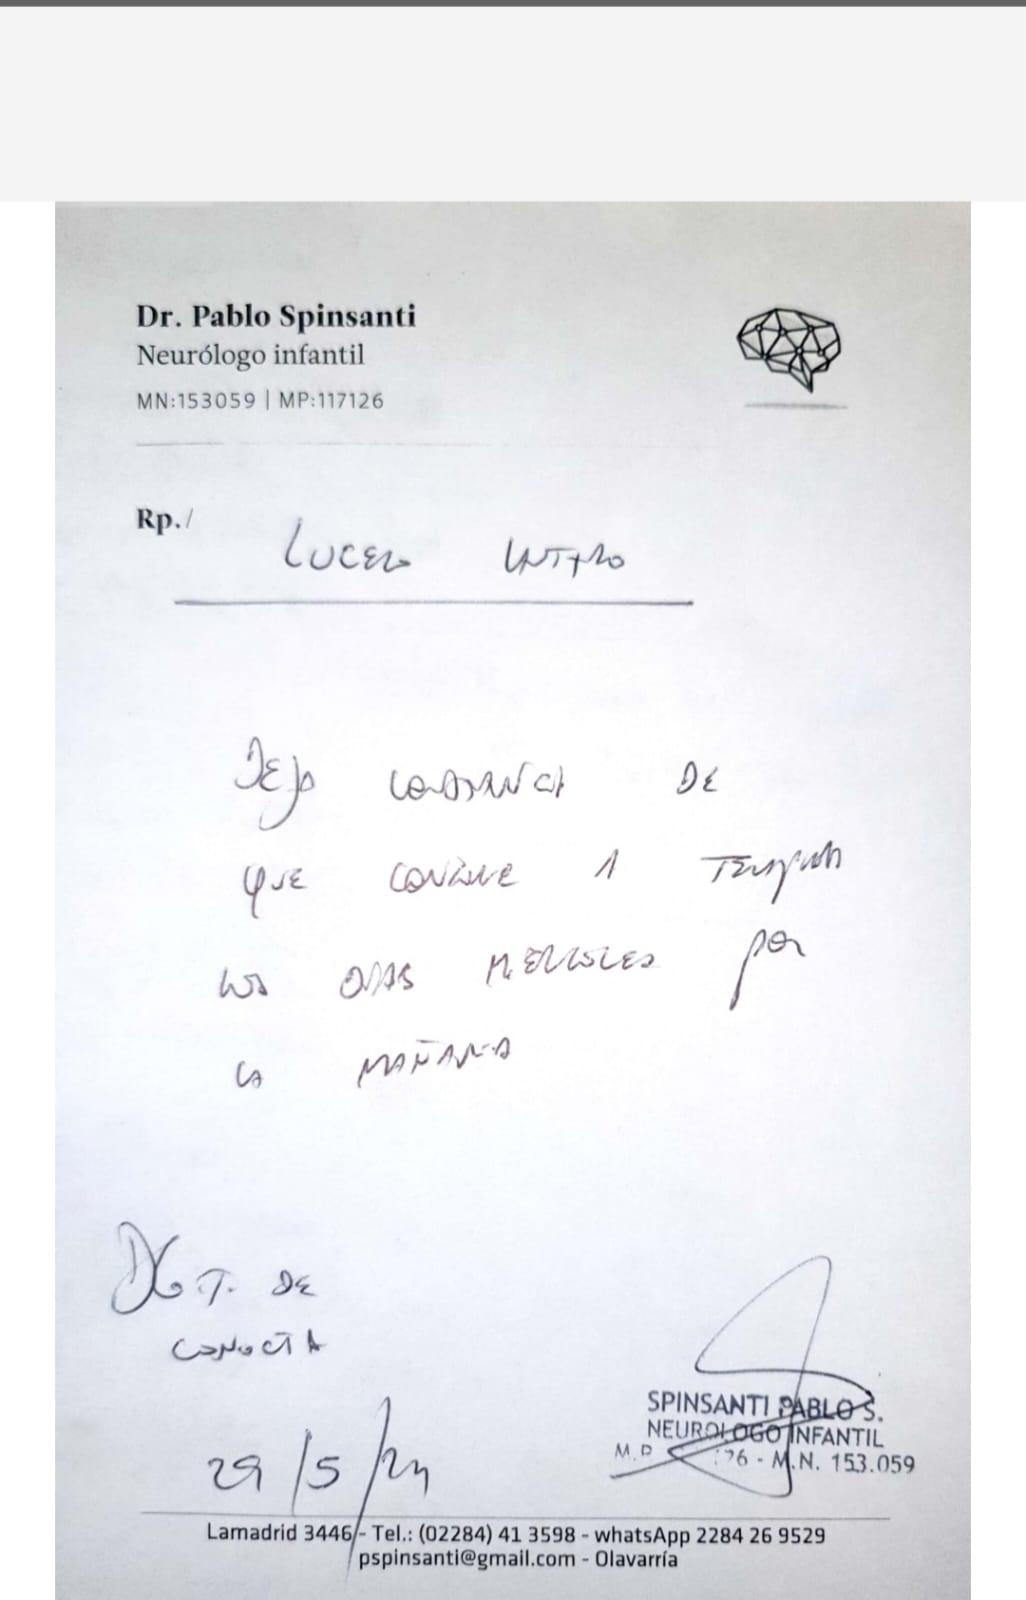 Dr. Pablo Spinsanti
Neurólogo infantil
MN:153059 | MP:117126
Rp./
LUCERO
DEJO CONSTANCIA DE
QUE CONCURRE A TERAPIA
LOS DIAS MIERCOLES POR
LA MAÑANA
DG T. DE
CONDUCTA
29/5/24
SPINSANTI PABLO S.
NEUROLOGO INFANTIL
M.P 126 - M.N. 153.059
Lamadrid 3446 - Tel.: (02284) 41 3598 - whatsApp 2284 26 9529
pspinsanti@gmail.com - Olavarría